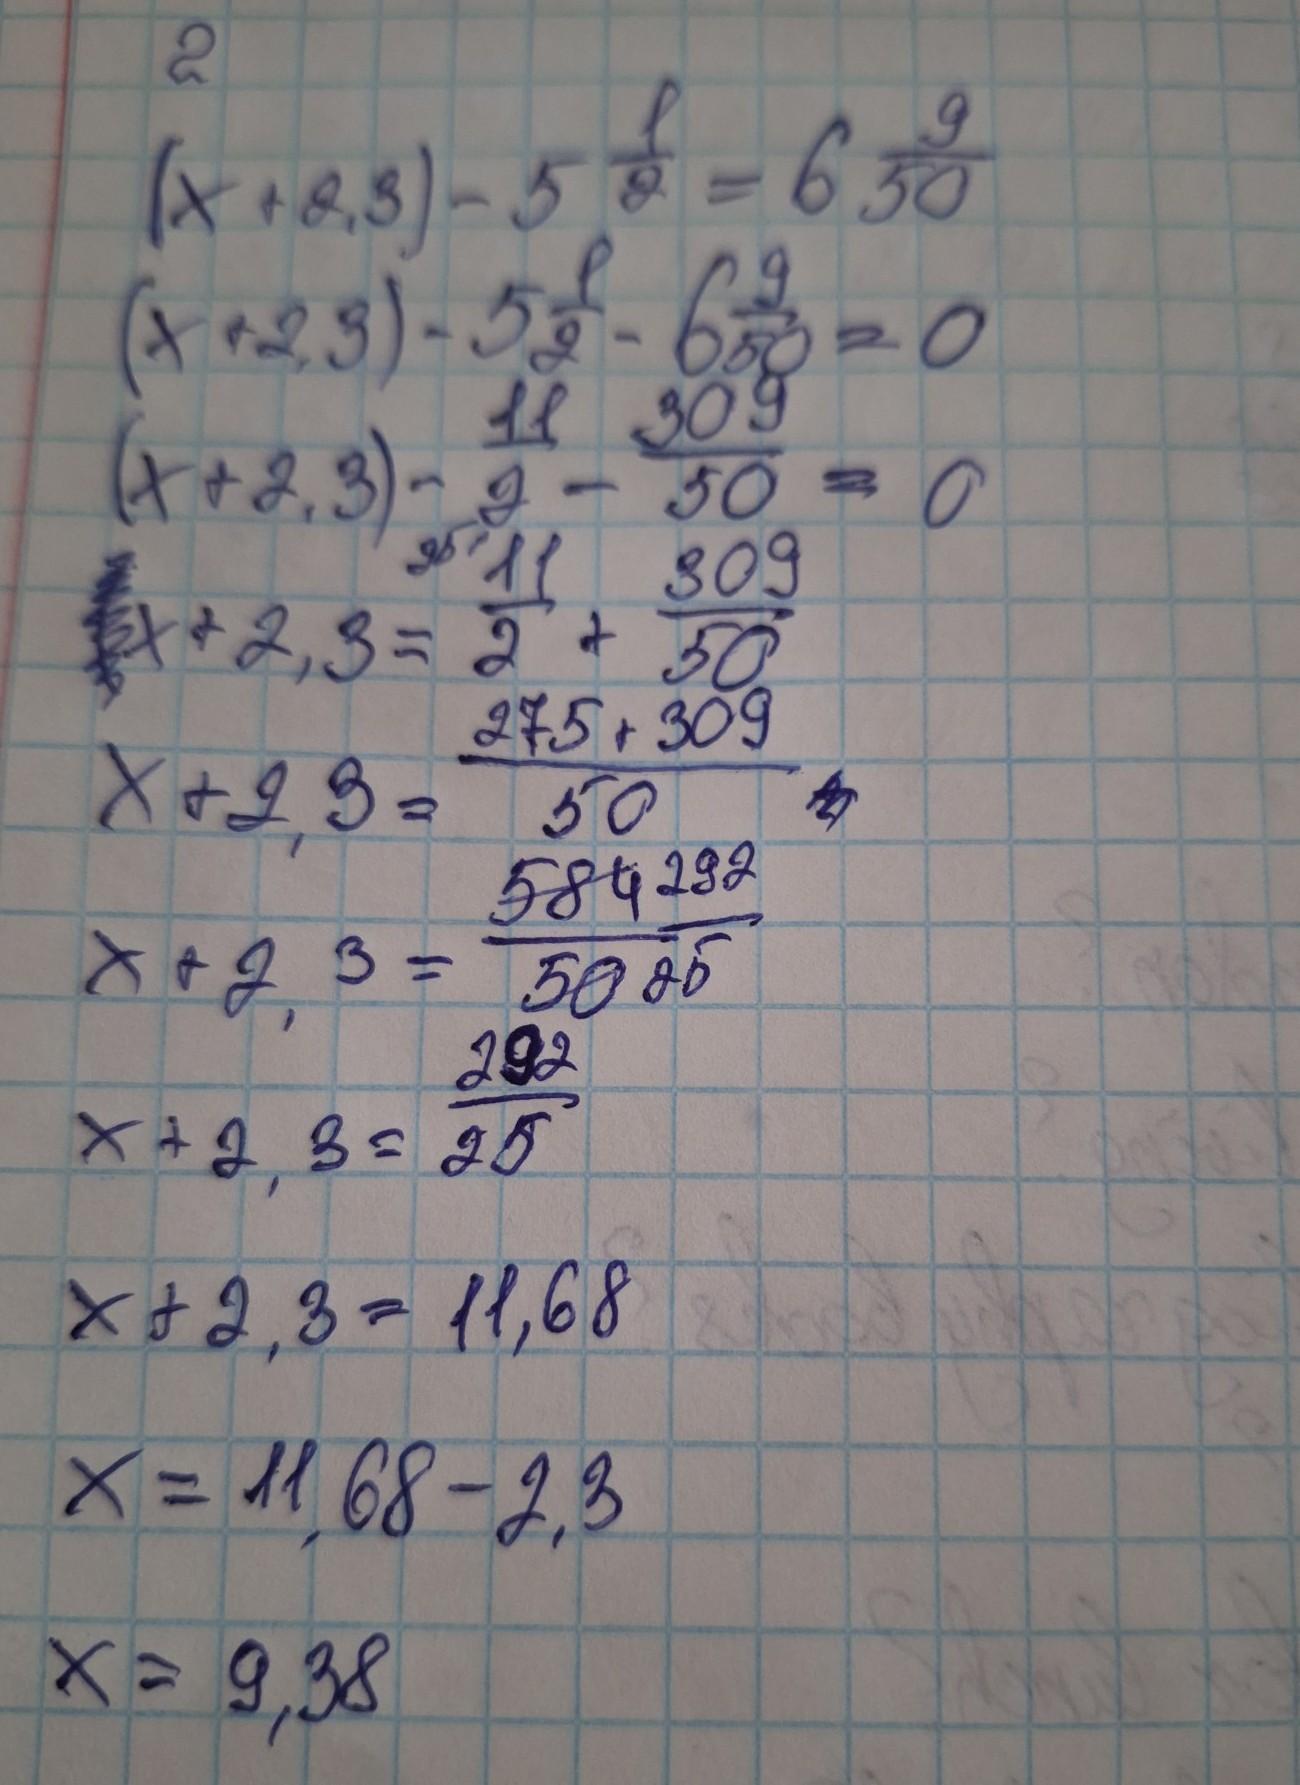 2
(x + 2,3) - 5 1/2 = 6 9/50
(x + 2,3) - 5 1/2 - 6 9/50 = 0
(x + 2,3) - 11/2 - 309/50 = 0
x + 2,3 = 25/ 11/2 + 309/50
x + 2,3 = 275 + 309/50
x + 2,3 = 584 292/50 25
x + 2,3 = 292/25
x + 2,3 = 11,68
x = 11,68 - 2,3
x = 9,38